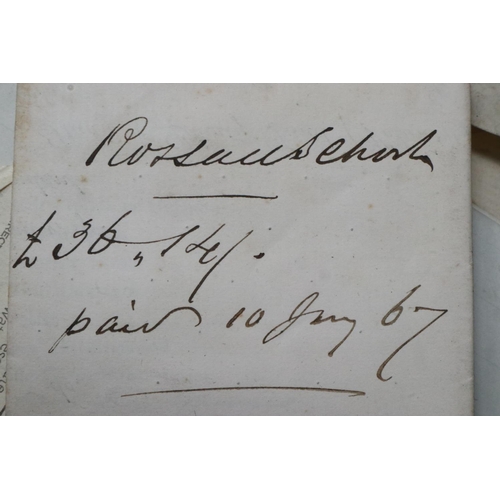 Rossall School
£36 „ 14/.
paid 10 Jny 67